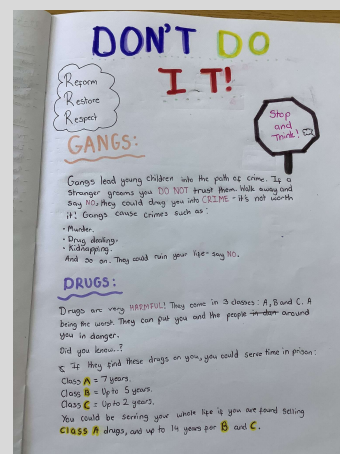 DON'T DO
IT!
Reform
Restore
Respect
Stop
and
Think!
GANGS:
Gangs lead young children into the path of crime. If a
stranger grooms you DO NOT trust them. Walk away and
say NO, they could drag you into CRIME - it's not worth
it! Gangs cause crimes such as:
• Murder.
• Drug dealing.
• Kidnapping.
And so on. They could ruin your life - say NO.
DRUGS:
Drugs are very HARMFUL! They come in 3 classes: A, B and C. A
being the worst. They can put you and the people in dan around
you in danger.
Did you know..?
If they find these drugs on you, you could serve time in prison:
Class A = 7 years.
Class B = Up to 5 years.
Class C = Up to 2 years.
You could be serving your whole life if you are found selling
Class A drugs, and up to 14 years for B and C.